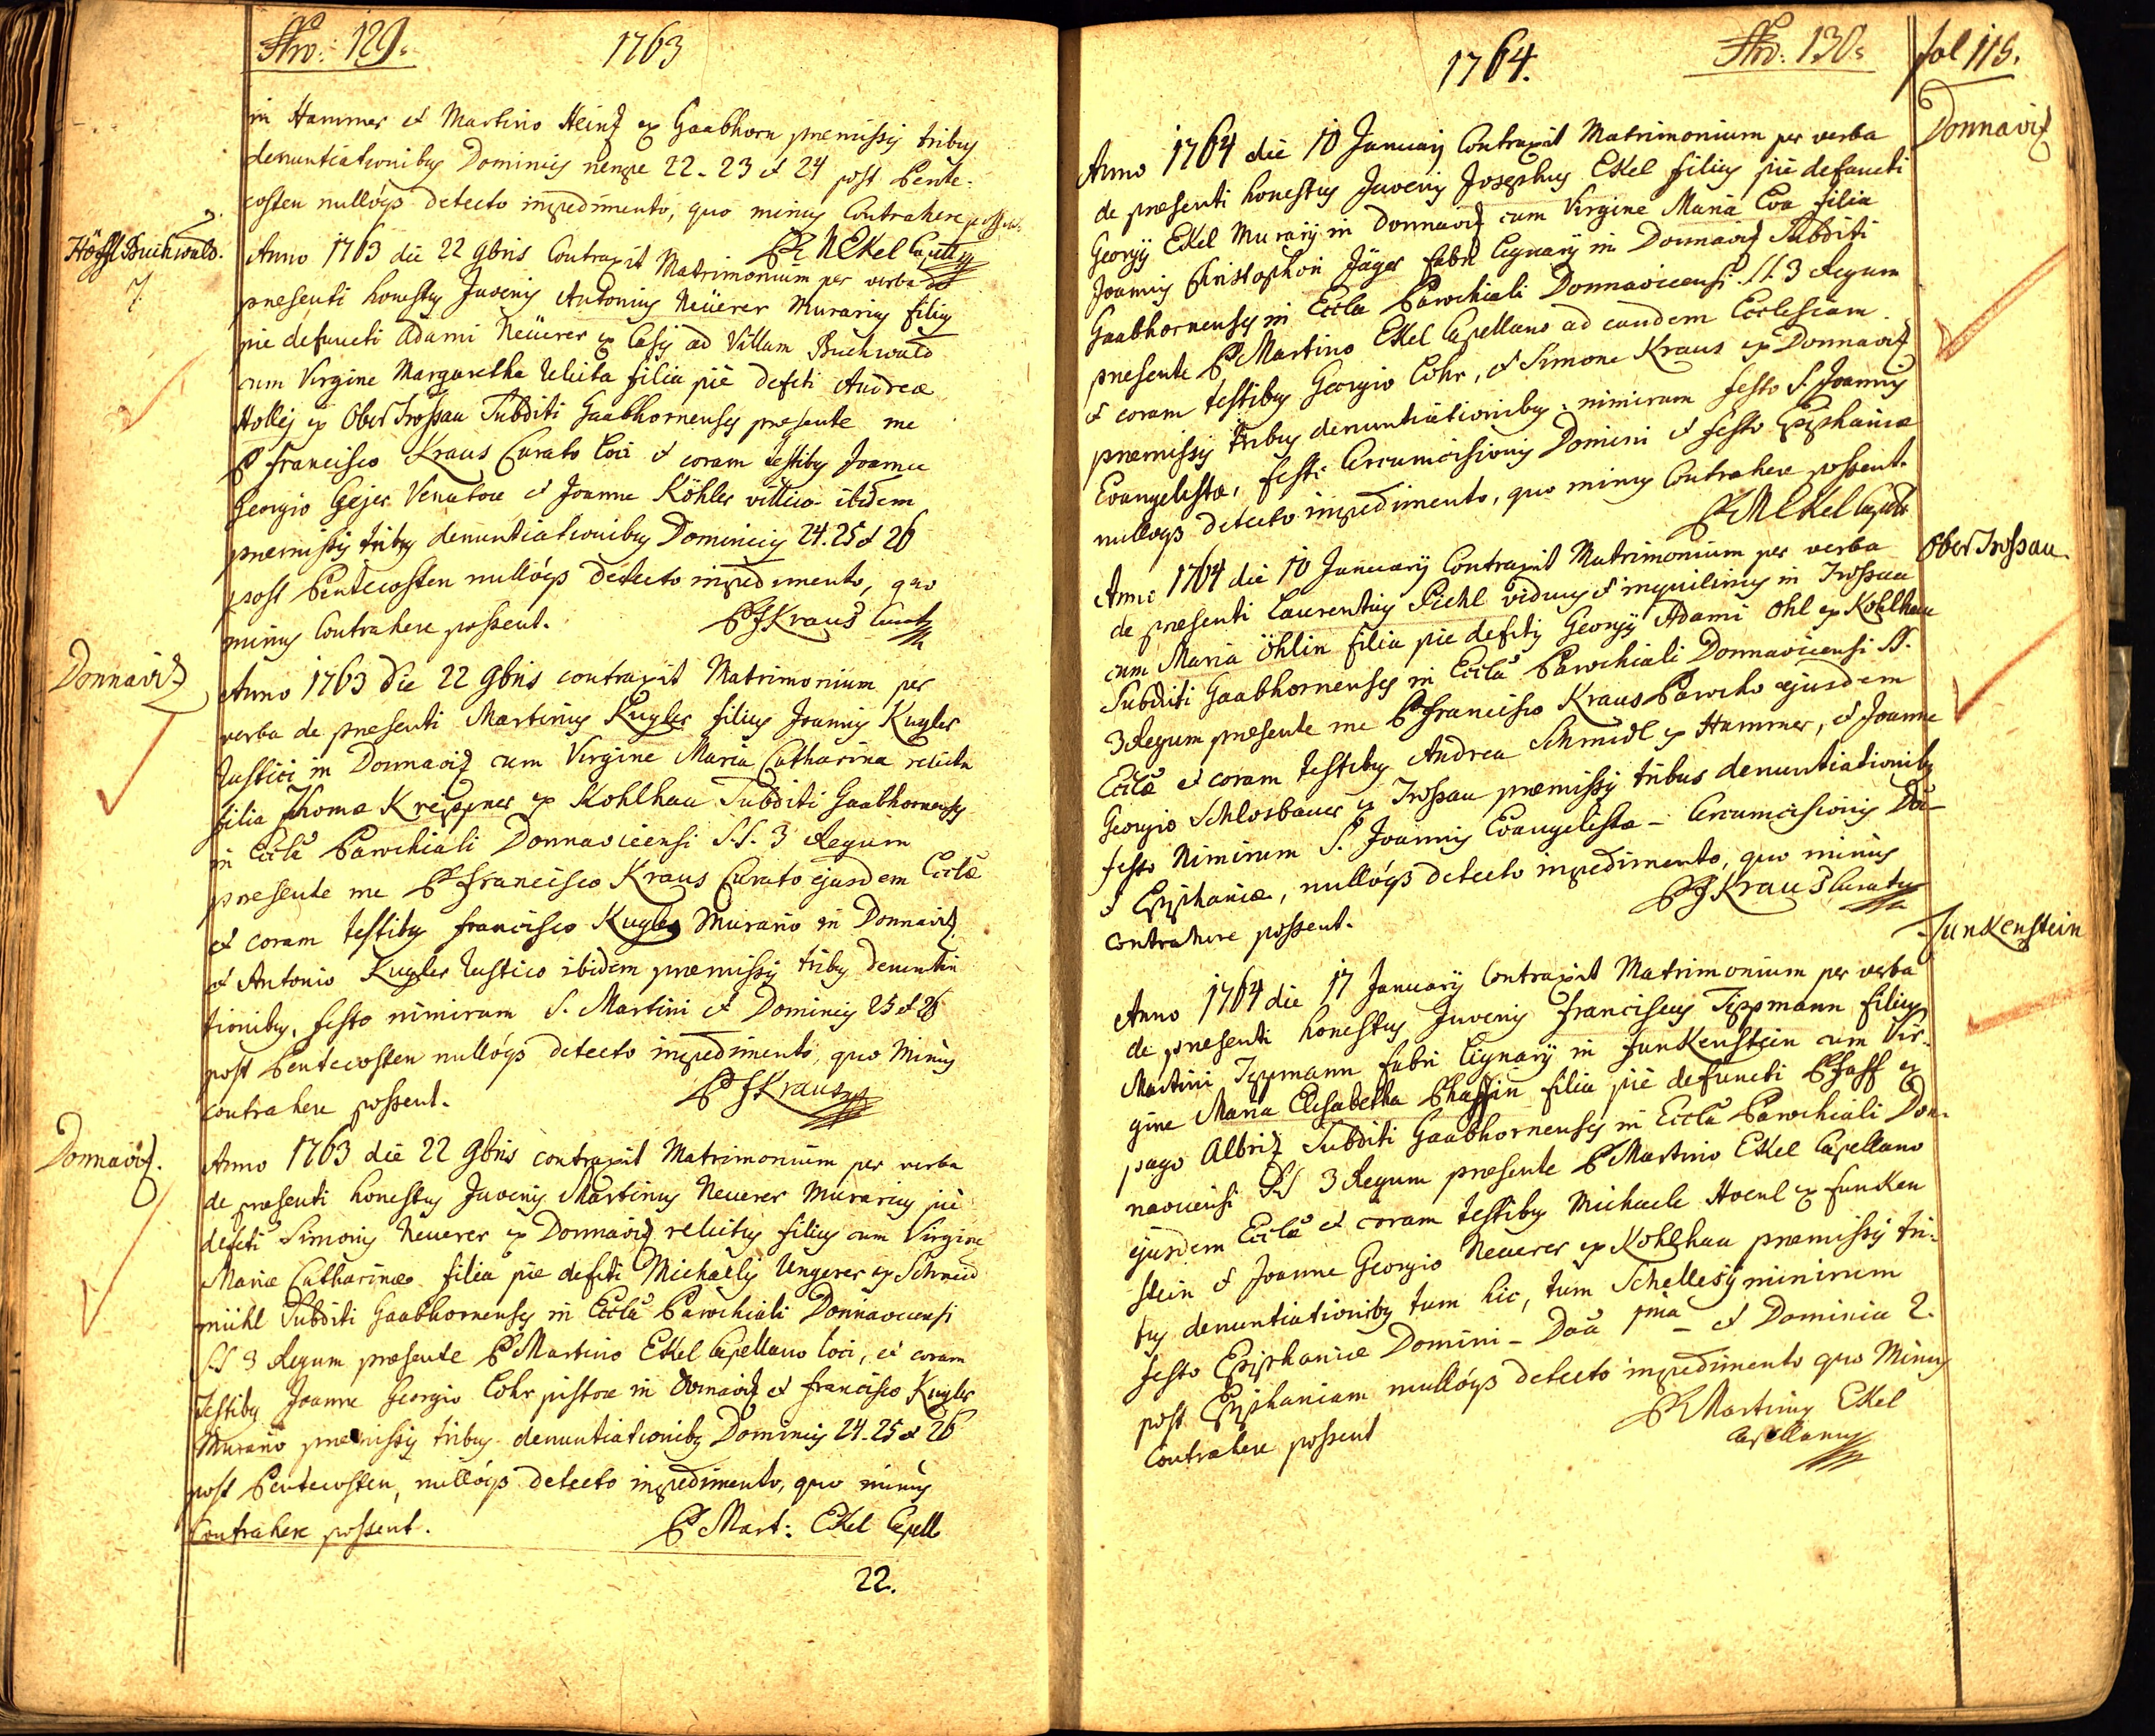 Nro: 129.
1763
in Hammer et Martino Heinz ex Gaabhorn præmissis tribus
denuntiationibus Dominicis nempe 22. 23 et 24 post Pente-
costen nullóqs detecto impedimento, quo minus Contrahere possen.
P M Ekel Capellus
Höffl Buchwald.
Anno 1763 die 22 9bris Contraxit Matrimonium per verba de
præsenti honestus Juvenis Antonius Neüerer Murarius filius
pie defuncti Adami Neüerer ex Casis ad Villam Buchwald
cum Virgine Margaretha relicta filia piè defcti Andreæ
Hollis ex Ober Trossau Subditi Gaabhornenses præsente me
P Francisco Kraus Curato Loci et coram testibus Joanne
Georgio Gejer Venatore et Joanne Köhler villico ibidem
præmissis tribus denuntiationibus Dominicis 24. 25 et 26
post Pentecosten nullóqs detecto impedimento, quo
minus Contrahere possent.
P F Kraus Curatus
Donnaviz
Anno 1763 die 22 9bris contraxit Matrimonium per
verba de præsenti Martinus Kugler filius Joannis Kugler
Rustici in Donnaviz cum Virgine Maria Catharina relicta
filia Thomæ Kreippner ex Kohlhau Subditi Gaabhornenses
in Eccla Parochiali Donnaviciensi S.S. 3 Regum
præsente me P Francisco Kraus Curato ejusdem Ecclæ
et coram testibus Francisco Kugler Murario in Donnaviz
et Antonio Kugler Rustico ibidem præmissis tribus denuntia
tionibus, festo nimirum S. Martini et Dominicis 25 et 26
post Pentecosten nullóqs detecto impedimento, quo Minus
contrahere possent.
P F Kraus
Donnaviz.
Anno 1763 die 22 9bris contraxit Matrimonium per verba
de præsenti honestus Juvenis Martinus Neuerer Murarius piè
defcti Simonis Neuerer ex Donnaviz relictus filius cum Virgine
Maria Catharina filia pie defcti Michaelis Ungerer ex Schneid
mühl Subditi Gaabhornenses in Eccla Parochiali Donnaviciensi
S.S 3 Regum præsente P Martino Ekel Capellano Loci, et coram
Testibus Joanne Georgio Lohr pistore in Donnaviz et Francisco Kugler
Murario præmissis tribus denuntiationibus Dominicis 24. 25 et 26
post Pentecosten, nullóqs detecto impedimento, quo minus
Contrahere possent.
P Mart: Ekel Capell
22.
1764.
Nro: 130.
fol 115.
Donnaviz
Anno 1764 die 10 Januarij Contraxit Matrimonium per verba
de præsenti honestus Juvenis Josephus Ekel filius piè defuncti
Georgij Ekel Murarij in Donnaviz cum Virgine Maria Eva filia
Joannis Christophori Jäger fabri Lignarij in Donnaviz Subditi
Gaabhornenses in Eccla Parochiali Donnaviccensi S.S. 3 Regum
præsente P Martino Ekel Capellano ad eandem Ecclesiam
et coram testibus Georgio Lohr, et Simone Kraus ex Donnaviz
præmissis tribus denuntiationibus, nimirum festo S. Joannis
Evangelistæ, festi Circumcisionis Domini et festo Epiphaniæ
nulloqs detecto impedimento, quo minus Contrahere possent.
P M Ekel Capells
Ober Trossau.
Anno 1764 die 10 Januarij Contraxit Matrimonium per verba
de præsenti Laurentius Pichl viduus et inquilinus in Trossau
cum Maria Öhlin filia pie defcti Georgij Adami Ohl ex Kohlhau
Subditi Gaabhornenses in Eccla Parochiali Donnaviciensi SS.
3 Regum præsente me P Francisco Kraus Parocho ejusdem
Ecclæ et coram testibus Andrea Schmidl ex Hammer, et Joanne
Georgio Schlosbauer ex Trossau præmissis tribus denuntiationibus
festo Nimirum S. Joannis Evangelistæ - Circumcisionis Dni -
et Epiphaniæ, nullóqs detecto impedimento, quo minus
contrahere possent.
P F Kraus Curatus
Funkenstein
Anno 1764 die 17 Januarij Contraxit Matrimonium per verba
de præsenti honestus Juvenis Franciscus Tippmann filius
Martini Tippmann fabri Lignarij in Funkenstein cum Vir-
gine Maria Elisabetha Phaffin filia piè defuncti Pfaff ex
pago Albriz Subditi Gaabhornenses in Eccla Parochiali Don-
naviciensi S.S 3 Regum præsente P Martino Ekel Capellano
ejusdem Ecclæ et coram testibus Michaele Hoenl ex Funken
stein et Joanne Georgio Neuerer ex Kohlhau præmissis tri-
bus denuntiationibus tum hic, tum Schellesij nimirum
festo Epiphaniæ Domini - Dnca 1ma - et Dominica 2.
post Epiphaniam nullóqs detecto impedimento quo Minus
Contrahere possent
P Martinus Ekel
Capellanus